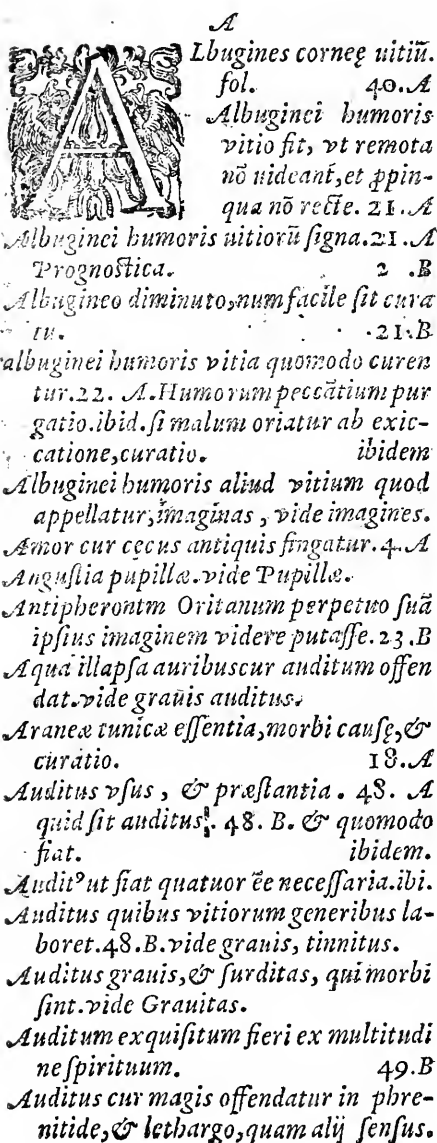 A
ALbugines corneę uitiũ.
fol. 40.A
Albuginei humoris
vitio fit, vt remota
nõ uideant̃, et ꝓpin-
qua nõ recte. 21.A
Albuginei humoris uitiorũ signa. 21.A
Prognostica. 2 .B
Albugineo diminuto, num facile sit cura
tu. 21.B
albuginei humoris vitia quomodo curen
tur. 22. A. Humorum peccãtium pur
gatio. ibid. si malum oriatur ab exic-
catione, curatio. ibidem
Albuginei humoris aliud vitium quod
appellatur, imaginas, vide imagines.
Amor cur cęcus antiquis fingatur. 4. A
Angustia pupillæ. vide Pupillæ.
Antipherontm Oritanum perpetuo suã
ipsius imaginem videre putasse. 23.B
Aqua illapsa auribus cur auditum offen
dat. vide grauis auditus.
Araneæ tunicæ essentia, morbi causę, &
curatio. 18.A
Auditus vsus, & præstantia. 48. A
quid sit auditus. 48. B. & quomodo
fiat. ibidem.
Auditꝰ ut fiat quatuor ẽe necessaria. ibi.
Auditus quibus vitiorum generibus la-
boret. 48.B. vide grauis, tinnitus.
Auditus grauis, & surditas, qui morbi
sint. vide Grauitas.
Auditum exquisitum fieri ex multitudi
ne spirituum. 49.B
Auditus cur magis offendatur in phre-
nitide, & lethargo, quam alij sensus.